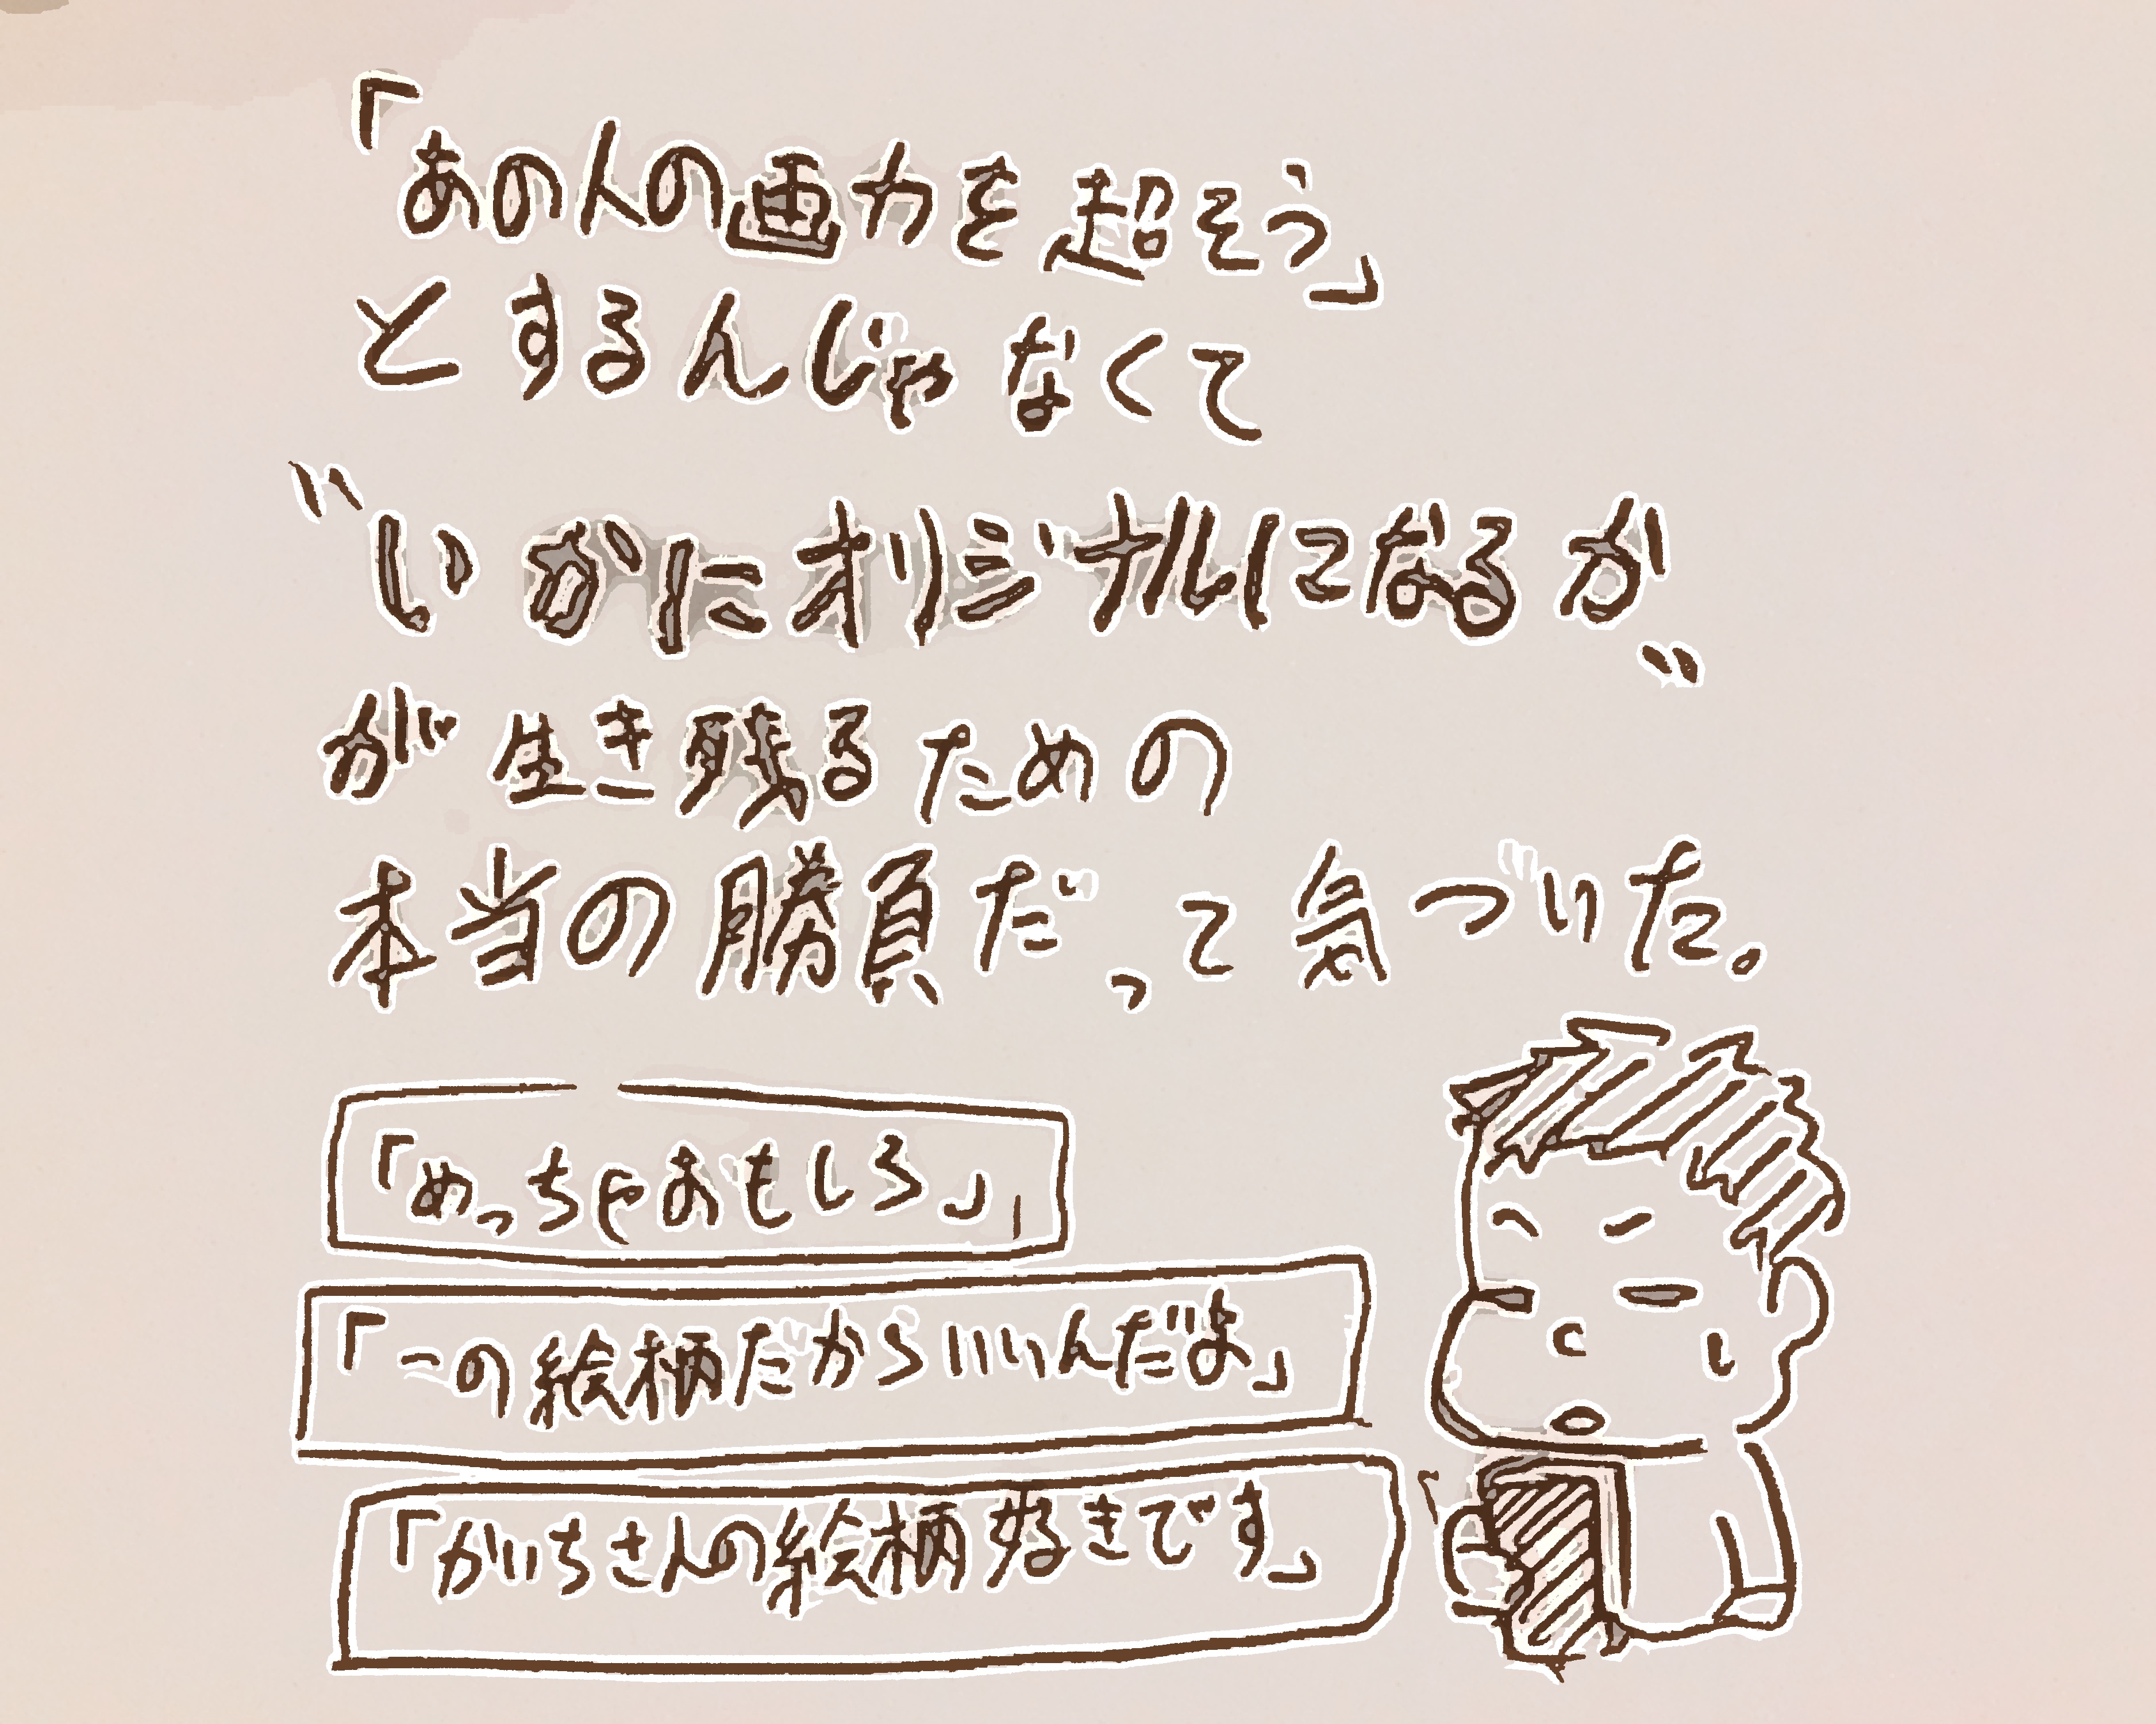 「あの人の画力を超そう」
とするんじゃなくて
"いかにオリジナルになるか"
が生き残るための
本当の勝負だって気づいた。
「めっちゃおもしろ」
「この絵柄だからいいんだよ」
「がいちさんの絵柄好きです」